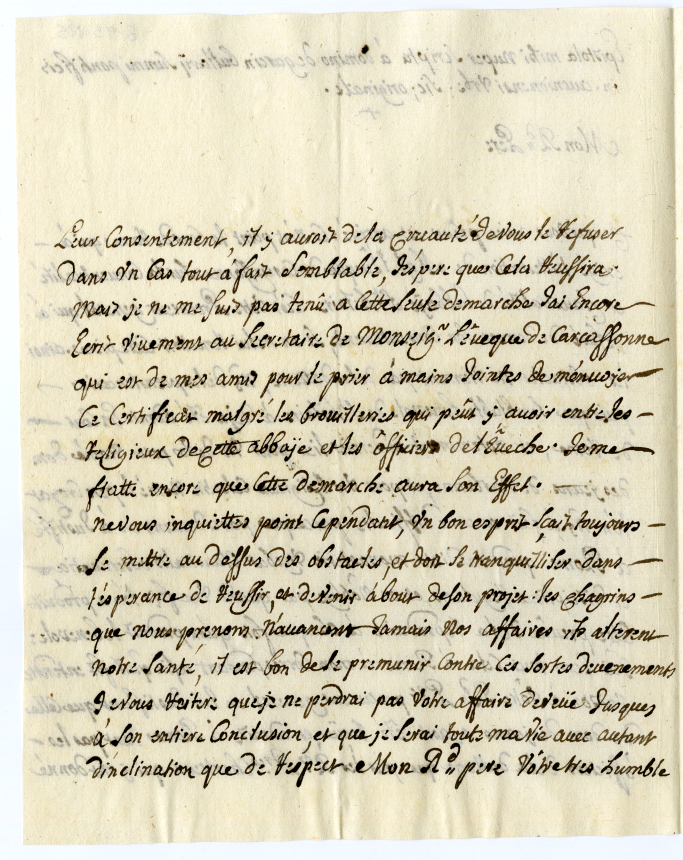 Leur Consentement, il y auroit de la cruauté de vous le refuser
dans un Cas tout à fait Semblable, J'espere que Cela reussira.
Mais je ne me suis pas tenû a Cette seule demarche J'ai Encore
Ecrit vivement au Secretaire de Monseigr. L'Eveque de Carcassonne
qui est de mes amis pour le prier à mains Jointes de m'envoyer
Ce Certificat malgré les brouilleries qui peût y avoir entre les
religieux de cette abbaÿe et les officiers de l'Eveche. Je me
flatte encore que Cette demarche aura Son Effet.
ne vous inquiettés point Cependant, un bon esprit sçait toujours
Se mettre au dessus des obstacles, et doit se tranquilliser dans
l'esperance de reussir, et de venir à bout de son projet. les chagrins
que nous prenons N'avancent Jamais Nos affaires ils alterent
notre Santé, il est bon de se premunir Contre Ces Sortes devenements
Je vous reitere que je ne perdrai pas votre affaire de veüe Jusques
à Son entiere Conclusion, et que je Serai toute ma vie avec autant
d'inclination que de respect. Mon Rd. pere Vôtre tres humble